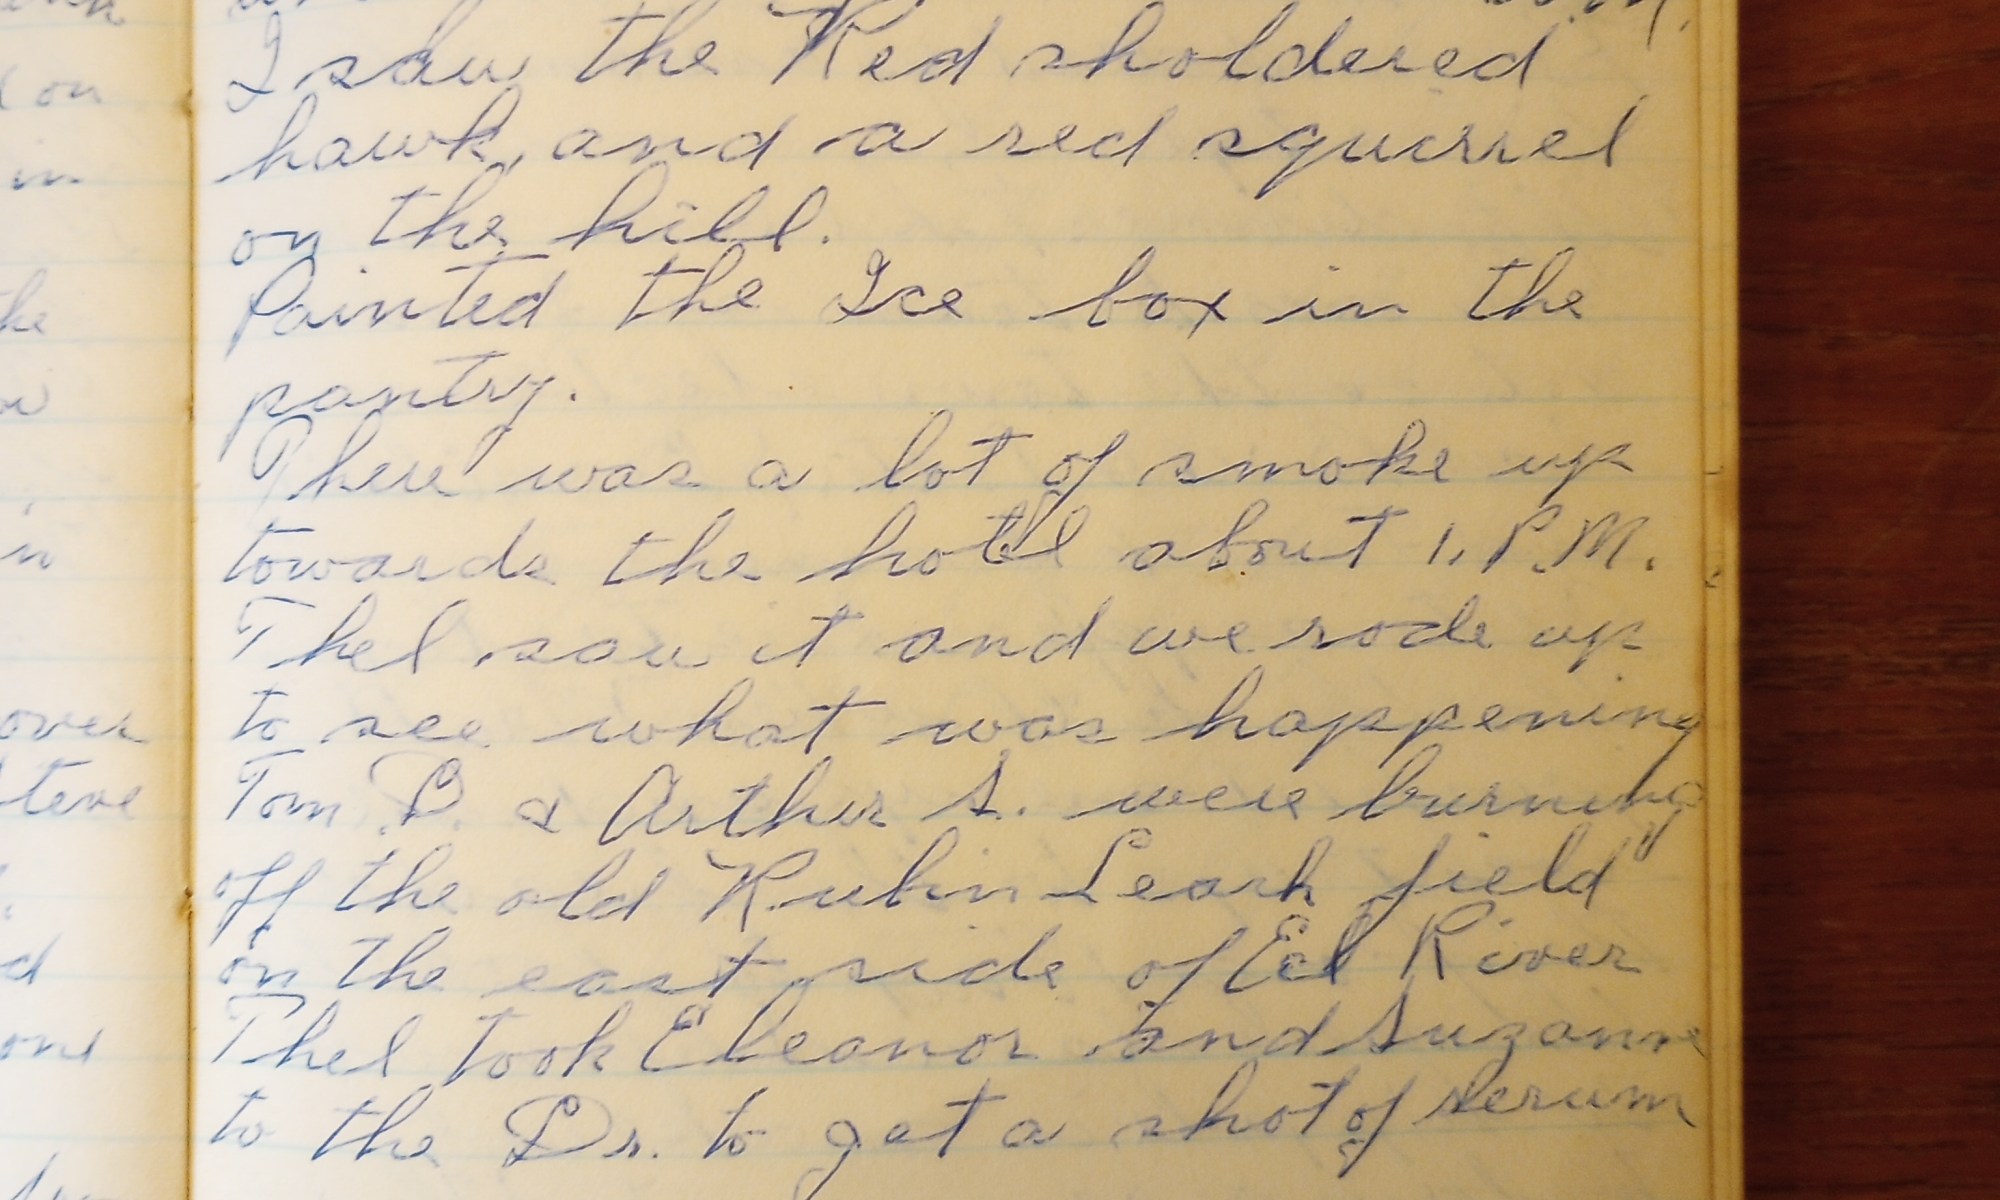 I saw the Red sholdered
hawk, and a red squirrel
on the hill.
Painted the Ice box in the
pantry.
There was a lot of smoke up
towards the hotel about 1, P.M.
Thel saw it and we rode up
to see what was happening
Tom B. & Arthur S. were burning
off the old Rubin Leach field
on the east side of Eel River
Thel took Eleanor and Suzanne
to the Dr. to get a shot of serum